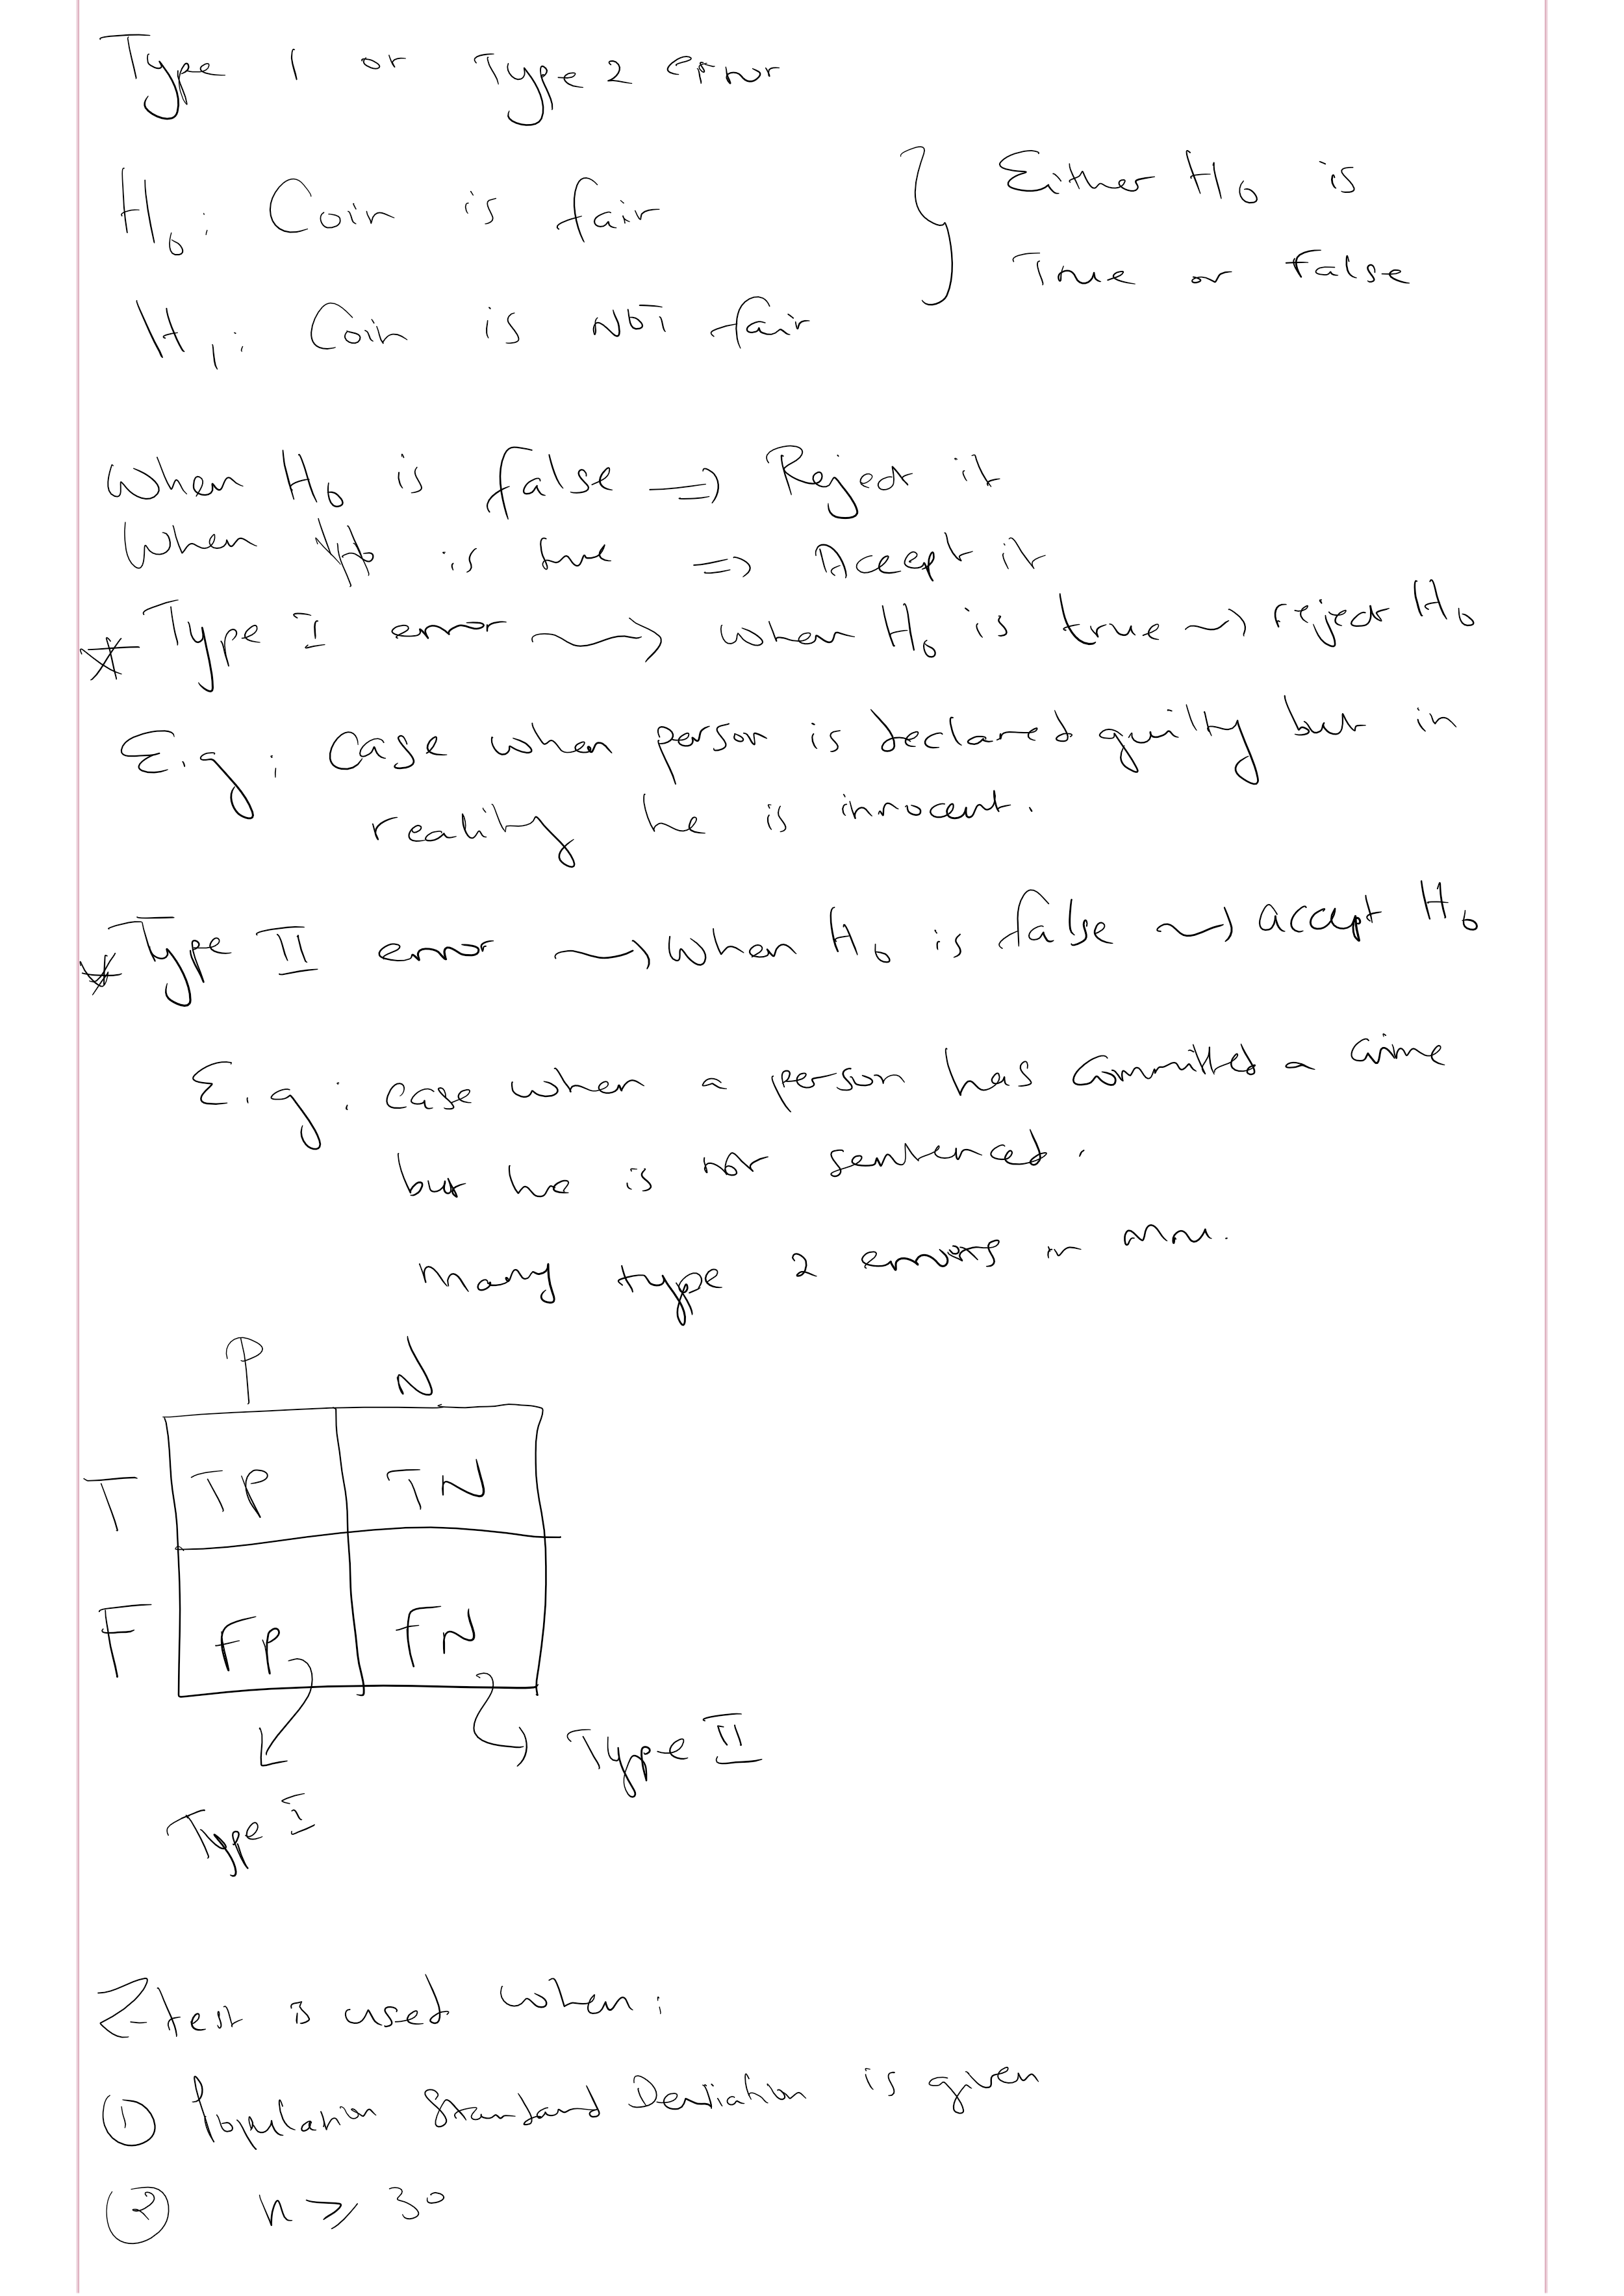 Type 1 or Type 2 error
H0: Coin is fair
H1: Coin is NOT fair
Either H0 is
True or False
When H0 is false => Reject it
When H0 is true => Accept it
* Type I error → when H0 is true → reject H0
E.g: Case when person is declared guilty but in
reality he is innocent.
* Type II error → When H0 is false → accept H0
E.g: case when a person has committed a crime
but he is not sentenced.
Many type 2 errors in
P N
T TP TN
F FP FN
Type II
Type I
Z-test is used when:
① Population Standard Deviation is given
② n ≥ 30